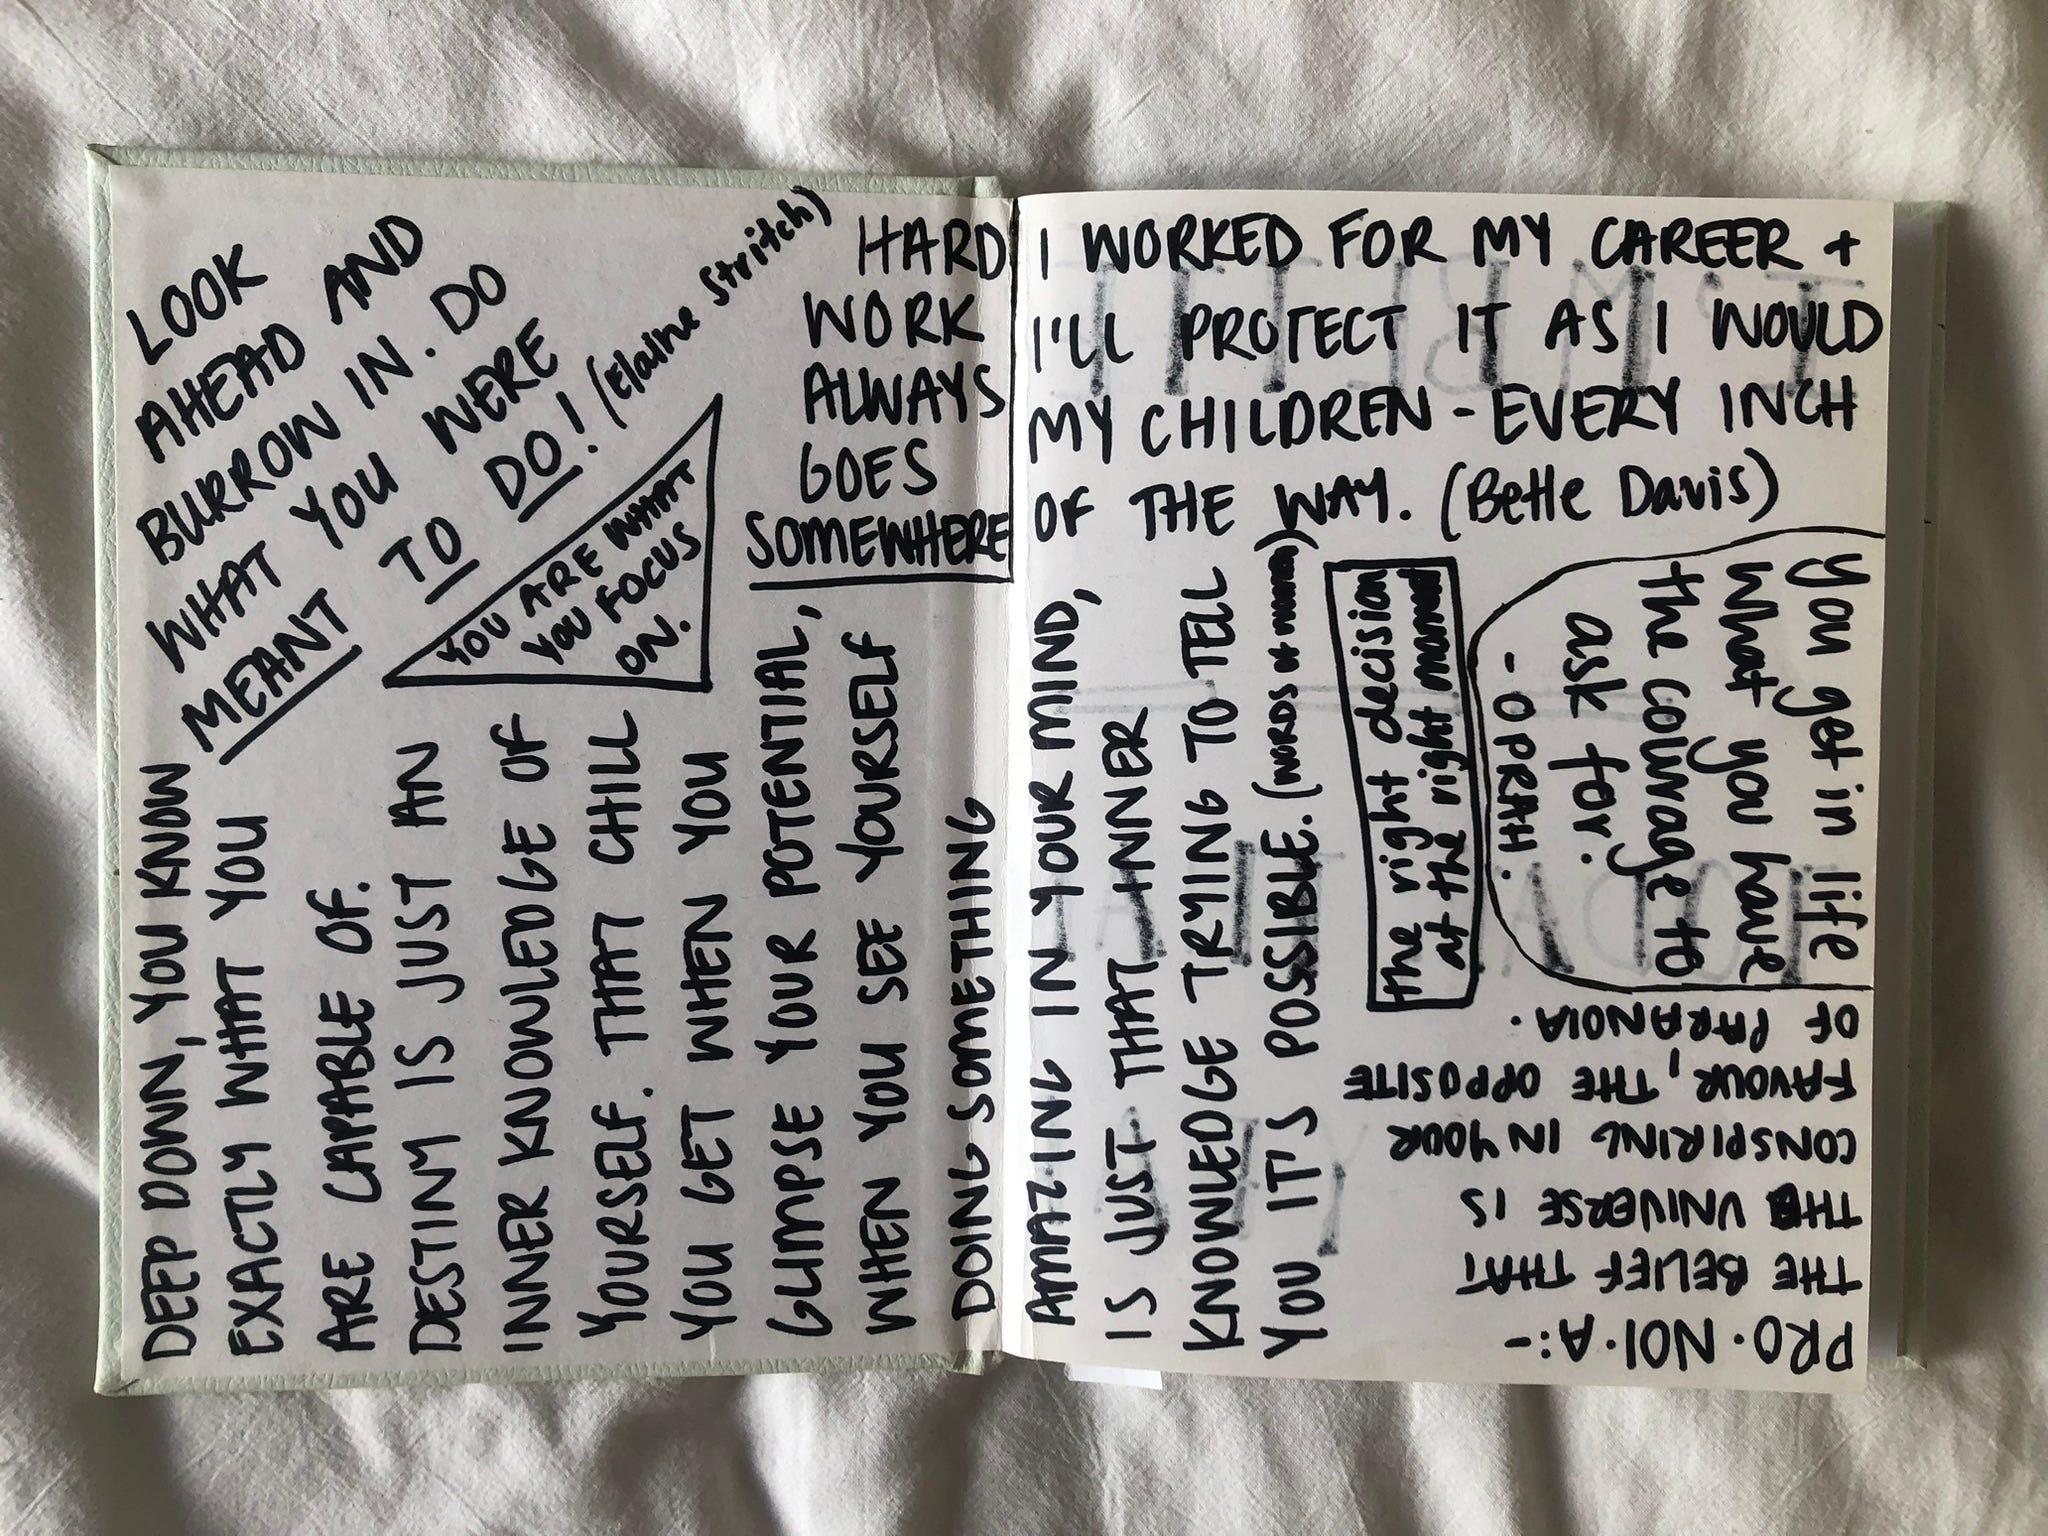 LOOK
AHEAD AND
BURROW IN. DO
WHAT YOU WERE
MEANT TO DO! (Elaine Stritch)
YOU ARE WHAT
YOU FOCUS
ON.
HARD
WORK
ALWAYS
GOES
SOMEWHERE
DEEP DOWN, YOU KNOW
EXACTLY WHAT YOU
ARE CAPABLE OF.
DESTINY IS JUST AN
INNER KNOWLEDGE OF
YOURSELF. THAT CHILL
YOU GET WHEN YOU
GLIMPSE YOUR POTENTIAL,
WHEN YOU SEE YOURSELF
DOING SOMETHING
AMAZING IN YOUR MIND,
IS JUST THAT INNER
KNOWLEDGE TRYING TO TELL
YOU IT'S POSSIBLE. (WORDS OF women)
I WORKED FOR MY CAREER +
I'LL PROTECT IT AS I WOULD
MY CHILDREN - EVERY INCH
OF THE WAY. (Bette Davis)
the right decision
at the right moment
You get in life
what you have
the courage to
ask for.
- OPRAH.
PRO·NOI·A:-
THE BELIEF THAT
THE UNIVERSE IS
CONSPIRING IN YOUR
FAVOUR, THE OPPOSITE
OF PARANOIA.